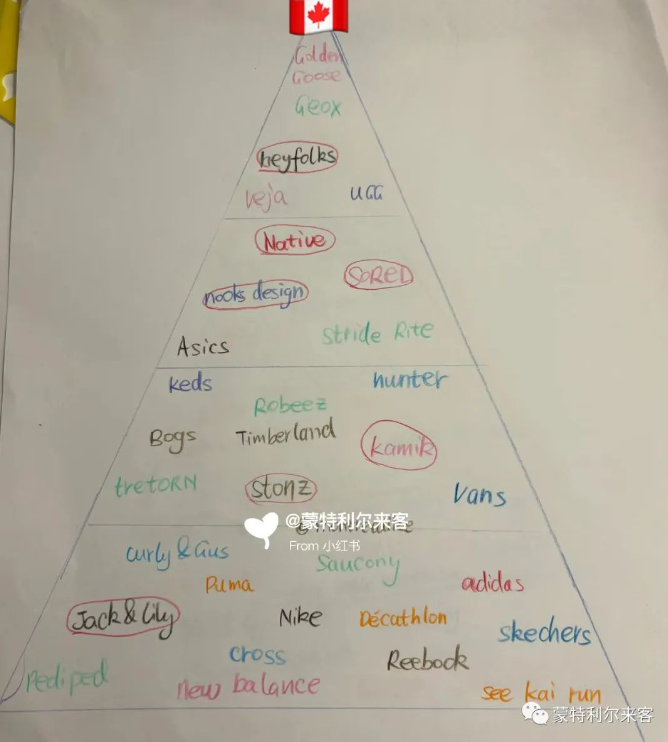 Golden
Goose
Geox
heyfolks
veja UGG
Native
SoReD
nooks design
Stride Rite
Asics
keds hunter
Robeez
Bogs Timberland
kamik
tretoRN stonz Vans
@蒙特利尔来客
From 小红书
curly & Gus Saucony
Puma adidas
Jack & Lily Nike Décathlon
skechers
cross Reebock
Pediped new balance see kai run
蒙特利尔来客